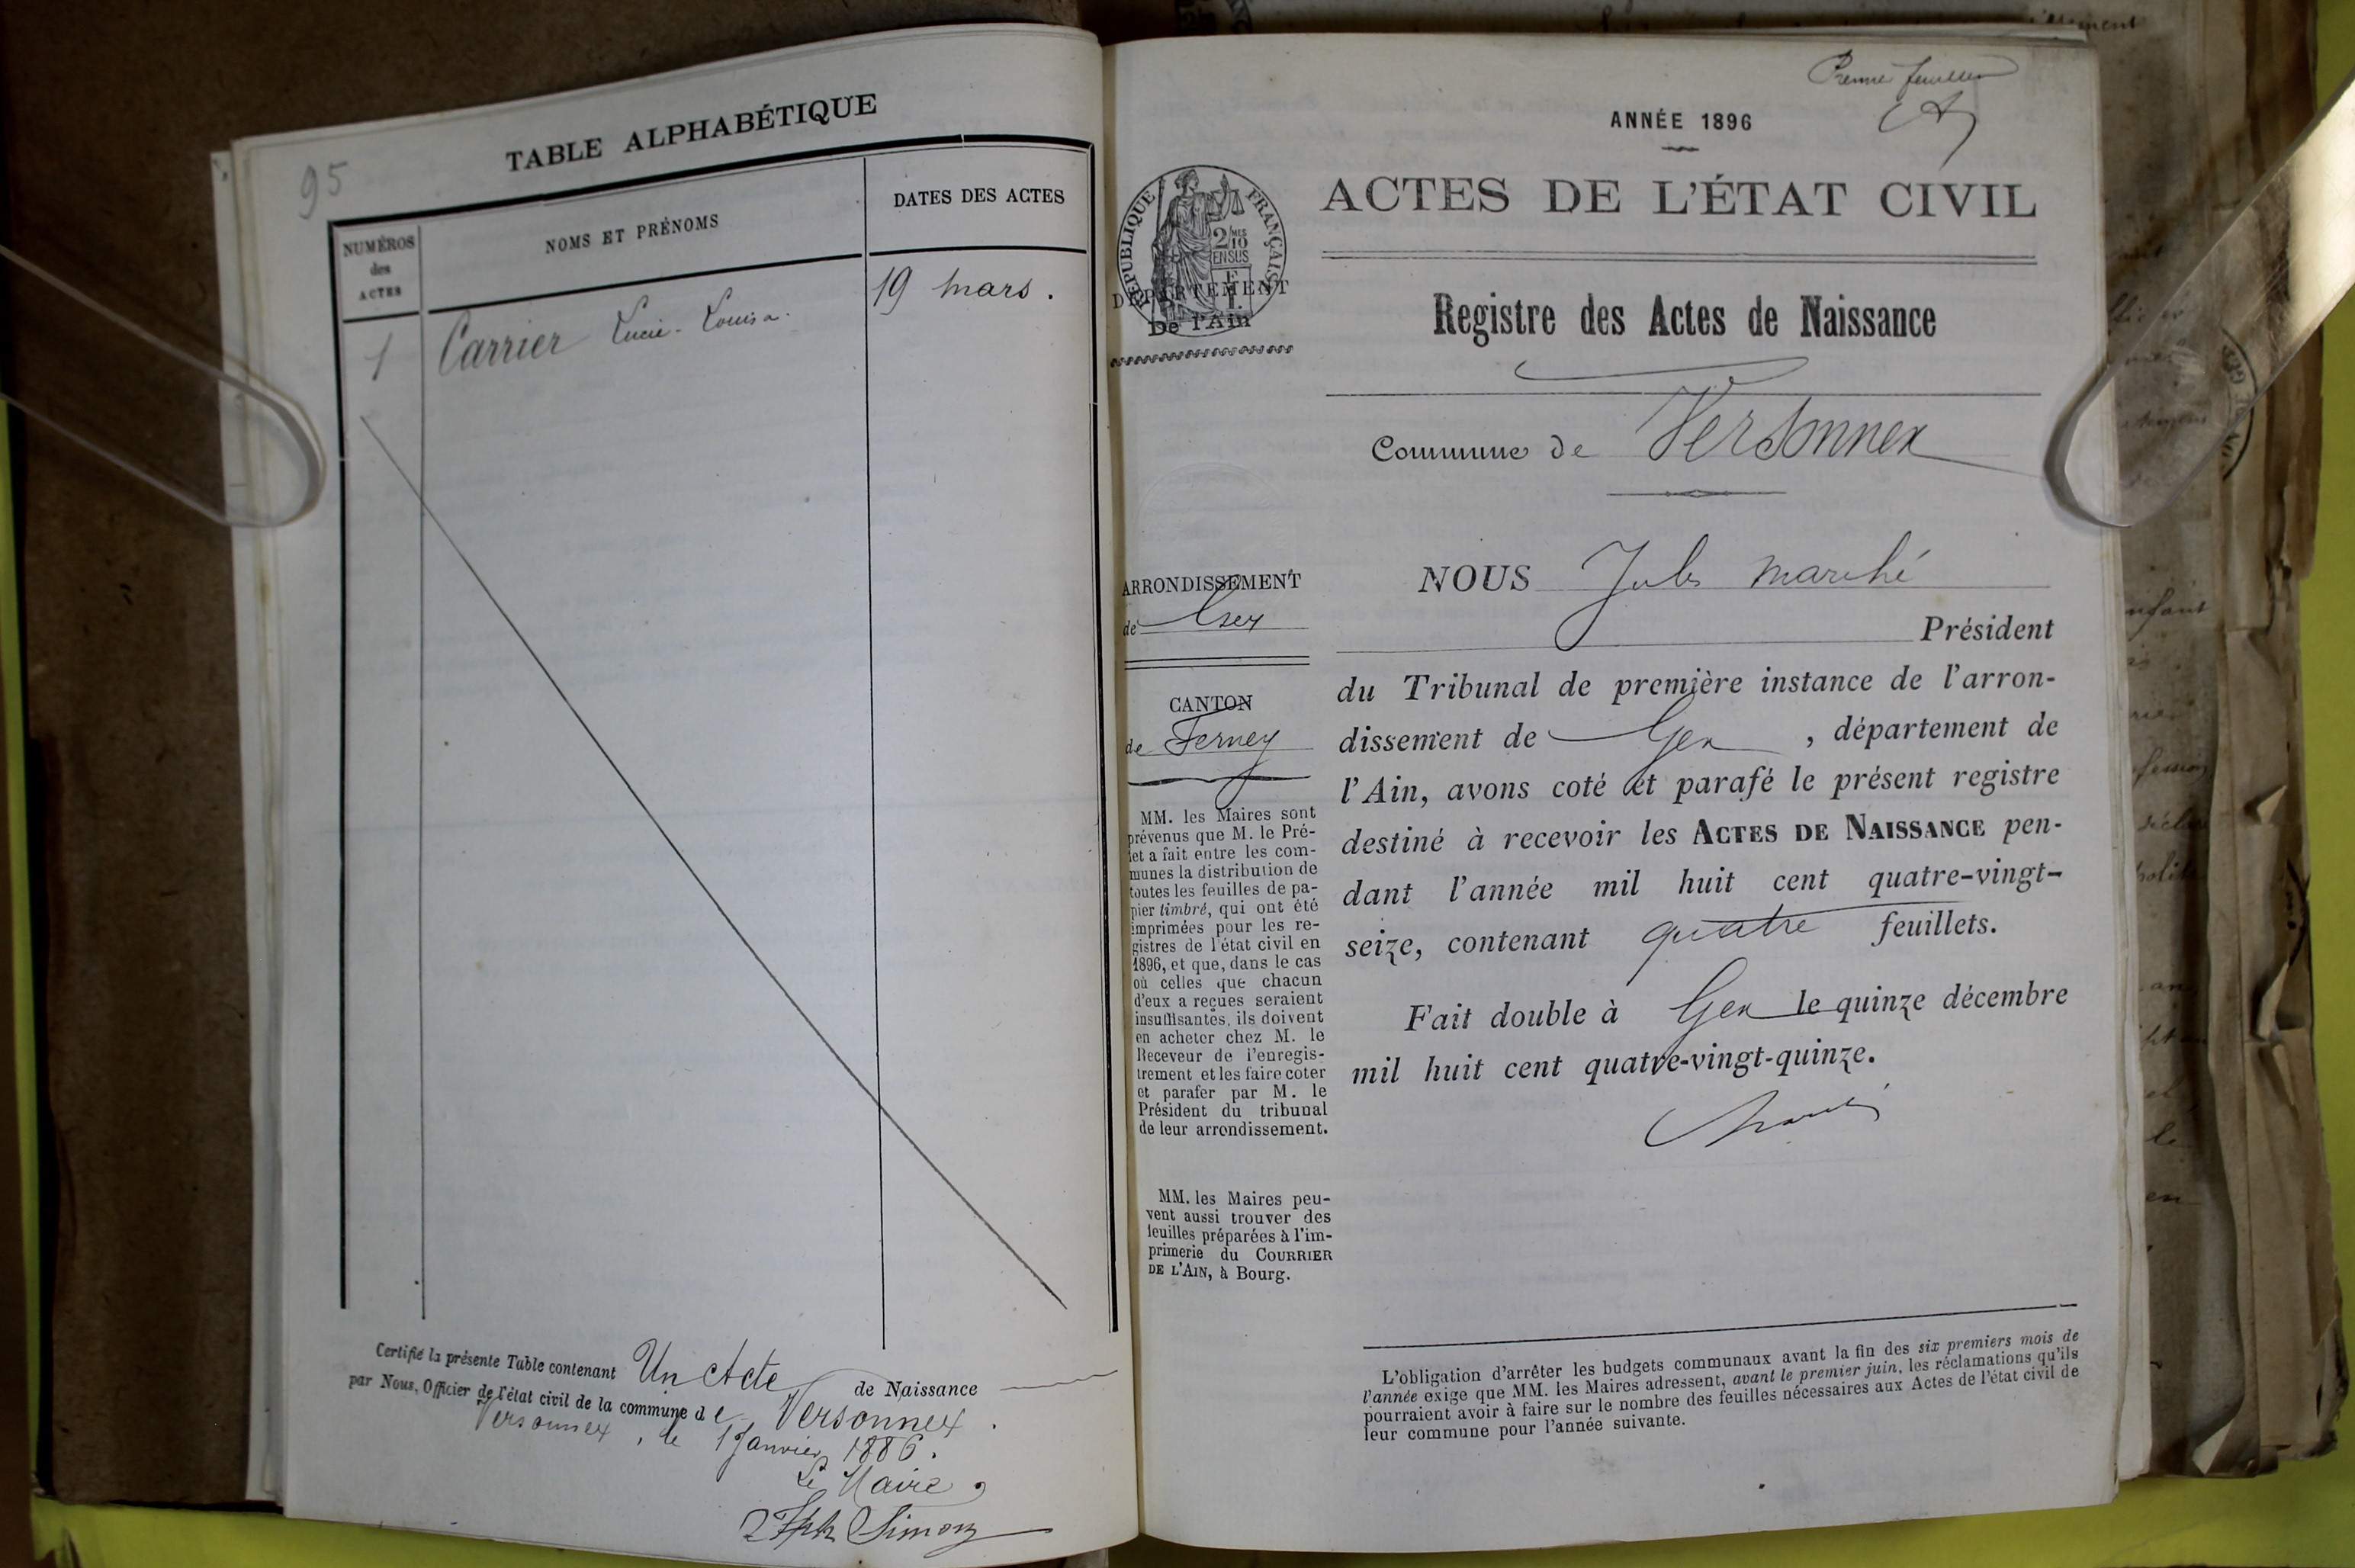 95
TABLE ALPHABÉTIQUE
NUMÉROS
des
ACTES
NOMS ET PRÉNOMS
DATES DES ACTES
1 Carrier Lucie-Louisa. 19 mars.
Certifié la présente Table contenant Un Acte de Naissance
par Nous, Officier de l'état civil de la commune de Versonnex.
Versonnex, le 1 Janvier 1886.
Le Maire,
Simon
Premier feuillet
ANNÉE 1896
ACTES DE L'ÉTAT CIVIL
RÉPUBLIQUE FRANÇAISE
2/10 MES
EN SUS
DÉPARTEMENT
De l'Ain
Registre des Actes de Naissance
Commune de Versonnex
ARRONDISSEMENT
de Gex
CANTON
de Ferney
MM. les Maires sont
prévenus que M. le Pré-
fet a fait entre les com-
munes la distribution de
toutes les feuilles de pa-
pier timbré, qui ont été
imprimées pour les re-
gistres de l'état civil en
1896, et que, dans le cas
où celles que chacun
d'eux a reçues seraient
insuffisantes, ils doivent
en acheter chez M. le
Receveur de l'enregis-
trement et les faire coter
et parafer par M. le
Président du tribunal
de leur arrondissement.
MM. les Maires peu-
vent aussi trouver des
feuilles préparées à l'im-
primerie du COURRIER
DE L'AIN, à Bourg.
NOUS Jules Marché
Président
du Tribunal de première instance de l'arron-
dissement de Gex, département de
l'Ain, avons coté et parafé le présent registre
destiné à recevoir les ACTES DE NAISSANCE pen-
dant l'année mil huit cent quatre-vingt-
seize, contenant quatre feuillets.
Fait double à Gex le quinze décembre
mil huit cent quatre-vingt-quinze.
L'obligation d'arrêter les budgets communaux avant la fin des six premiers mois de
l'année exige que MM. les Maires adressent, avant le premier juin, les réclamations qu'ils
pourraient avoir à faire sur le nombre des feuilles nécessaires aux Actes de l'état civil de
leur commune pour l'année suivante.